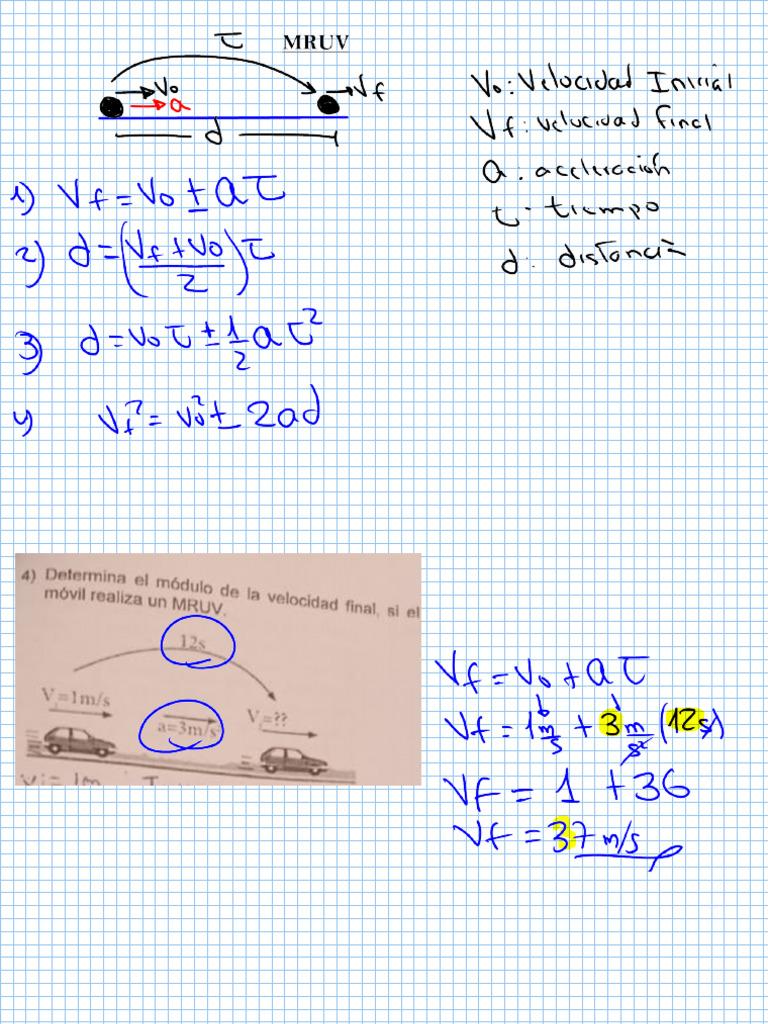 τ MRUV
Vo Vf
a
d
Vo: Velocidad Inicial
Vf: velocidad final
a: aceleración
t: tiempo
d: distancia
1) Vf = Vo ± aτ
2) d = (Vf + Vo / 2) τ
3) d = Voτ ± 1/2 aτ²
4) Vf² = Vo² ± 2ad
4) Determina el módulo de la velocidad final, si el
móvil realiza un MRUV.
12s
V=1m/s
a=3m/s²
V=??
Vf = Vo + aτ
Vf = 1 m/s + 3 m/s² (12s)
Vf = 1 + 36
Vf = 37 m/s